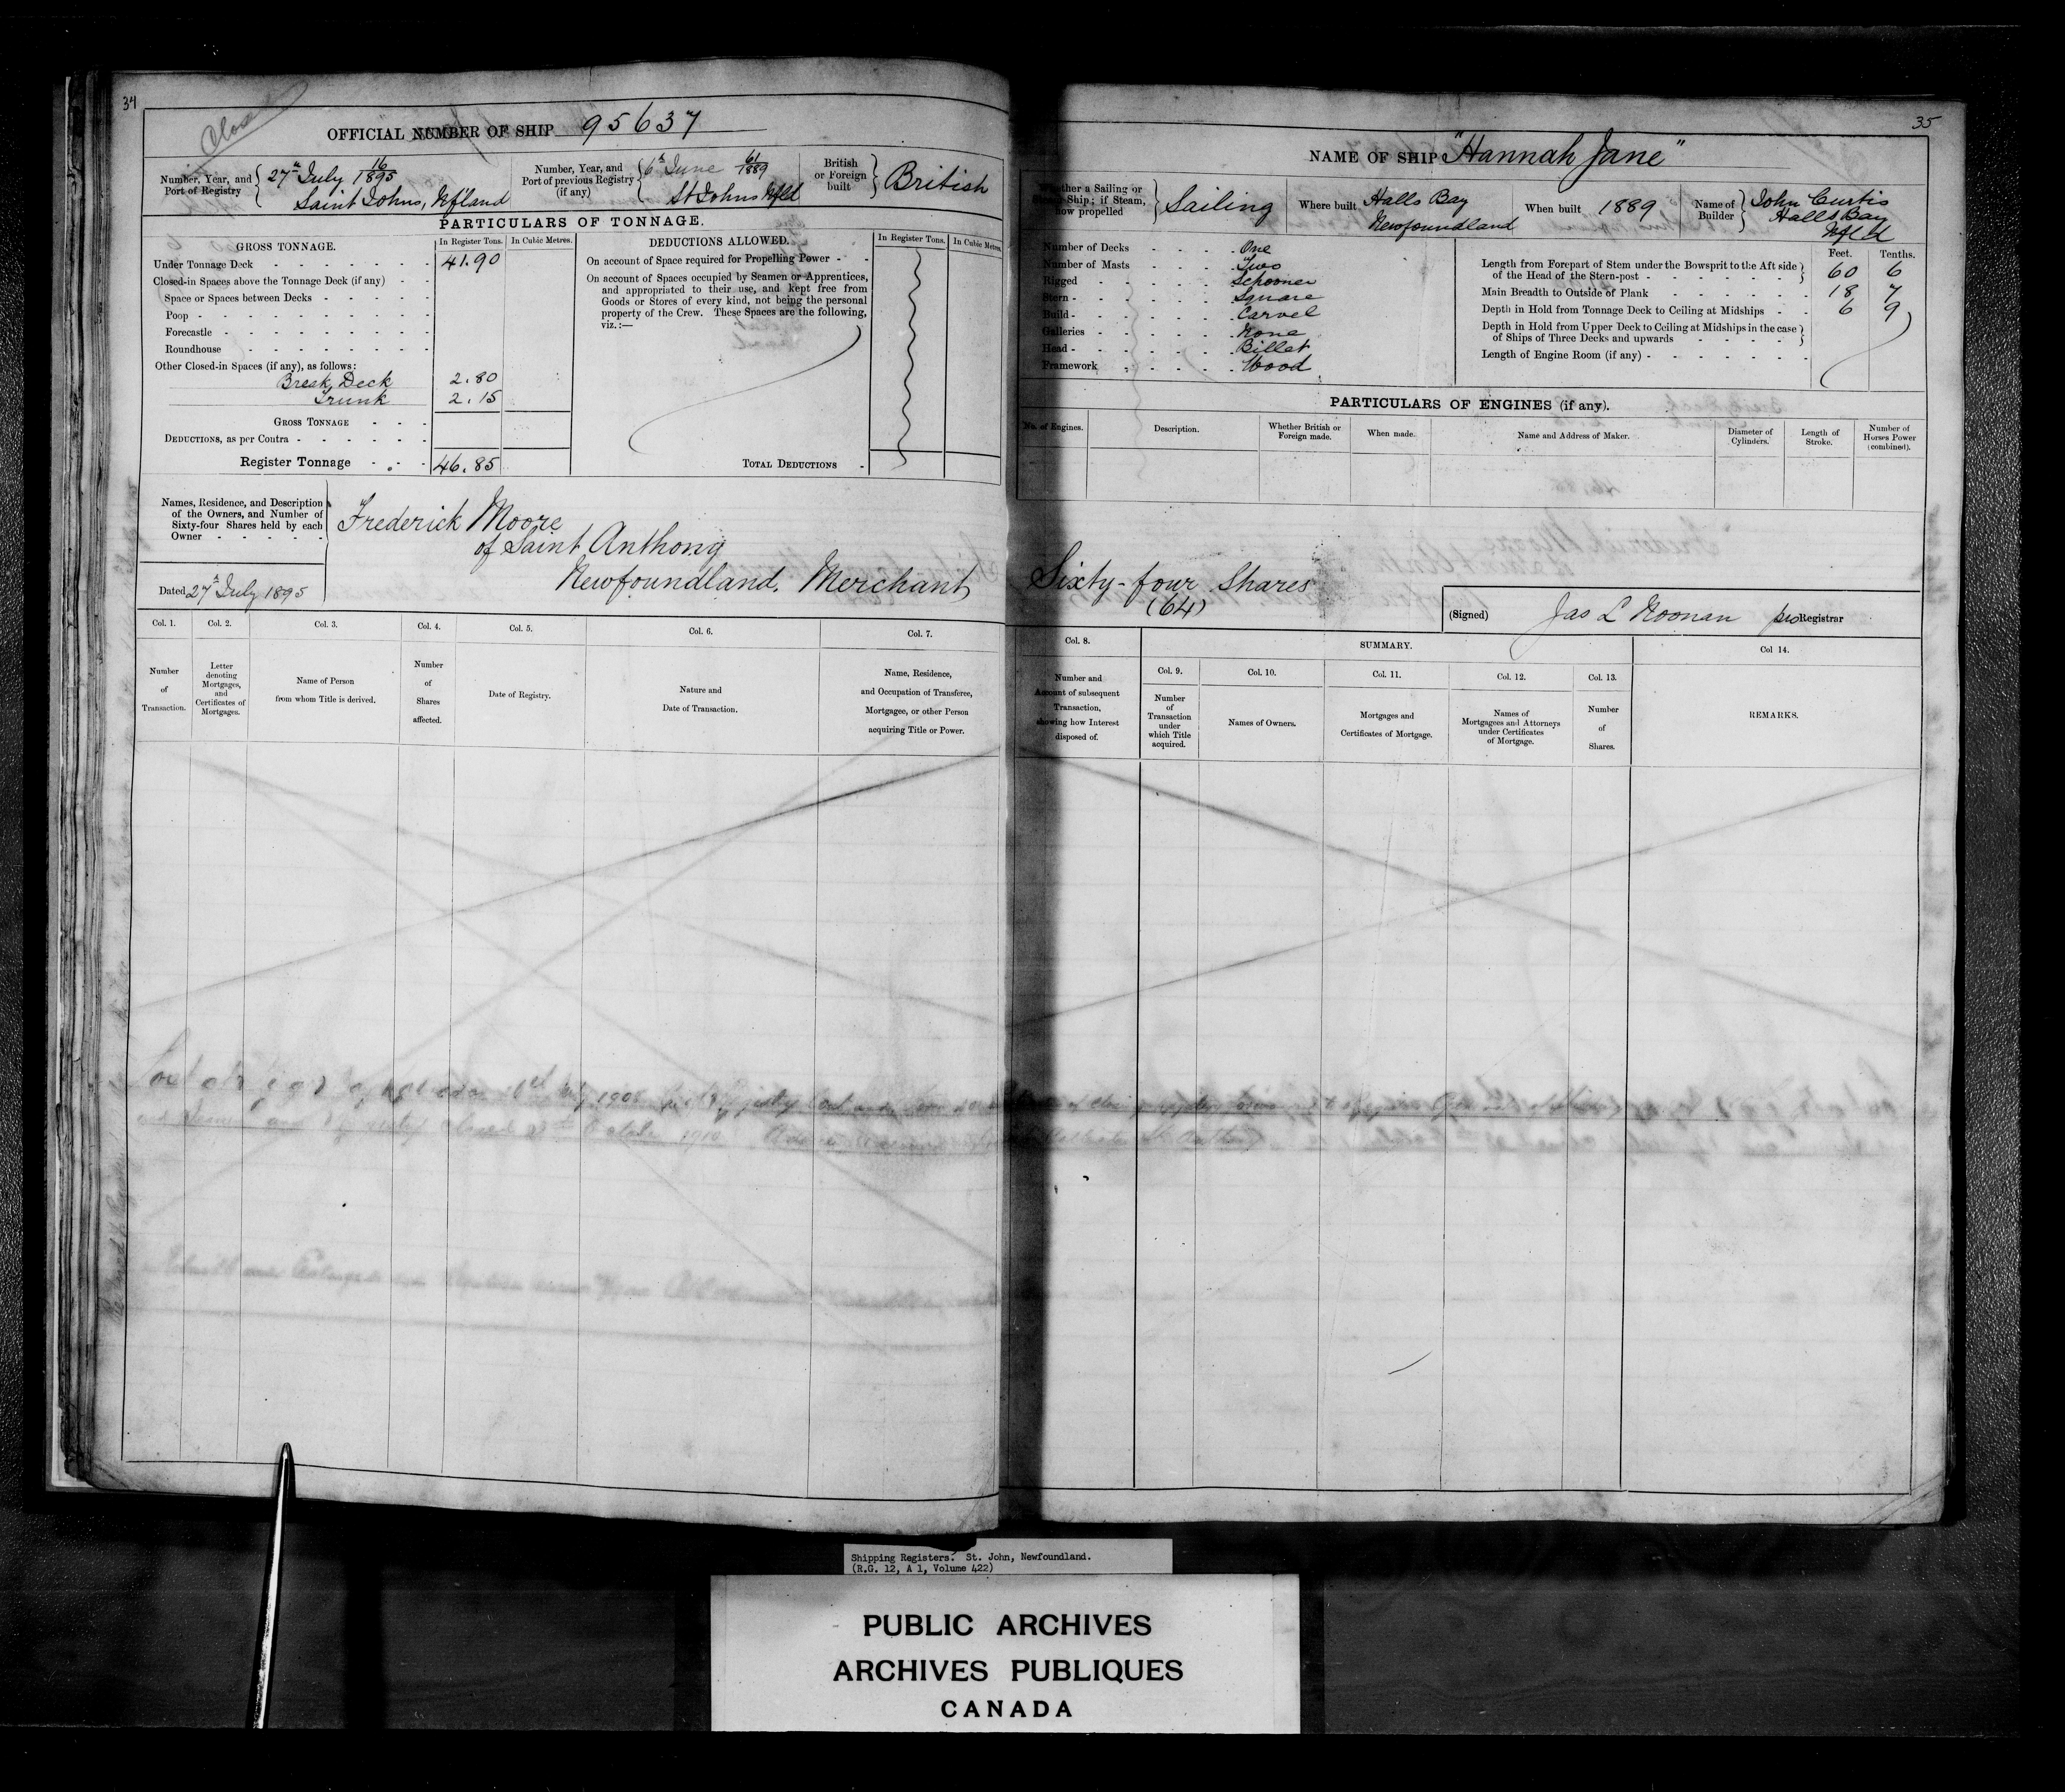 34
Close
OFFICIAL NUMBER OF SHIP 95637
Number, Year, and Port of Registry { 27th July 16/1895
Saint Johns, Nfland
Number, Year, and Port of previous Registry (if any) { 6th June 61/1889
St Johns Nfld
British or Foreign built } British
PARTICULARS OF TONNAGE.
GROSS TONNAGE. In Register Tons. In Cubic Metres.
Under Tonnage Deck 41.90
Closed-in Spaces above the Tonnage Deck (if any)
Space or Spaces between Decks
Poop
Forecastle
Roundhouse
Other Closed-in Spaces (if any), as follows:
Break Deck 2.80
Trunk 2.15
GROSS TONNAGE
DEDUCTIONS, as per Contra
Register Tonnage 46.85
DEDUCTIONS ALLOWED. In Register Tons. In Cubic Metres.
On account of Space required for Propelling Power
On account of Spaces occupied by Seamen or Apprentices,
and appropriated to their use, and kept free from
Goods or Stores of every kind, not being the personal
property of the Crew. These Spaces are the following,
viz.:—
TOTAL DEDUCTIONS
Names, Residence, and Description
of the Owners, and Number of
Sixty-four Shares held by each
Owner
Frederick Moore
of Saint Anthony
Newfoundland. Merchant
Dated 27th July 1895
Col. 1. Col. 2. Col. 3. Col. 4. Col. 5. Col. 6. Col. 7.
Number of Transaction.
Letter denoting Mortgages, and Certificates of Mortgages.
Name of Person from whom Title is derived.
Number of Shares affected.
Date of Registry.
Nature and Date of Transaction.
Name, Residence, and Occupation of Transferee, Mortgagee, or other Person acquiring Title or Power.
35
NAME OF SHIP "Hannah Jane"
Whether a Sailing or Steam Ship; if Steam, how propelled } Sailing
Where built Halls Bay
Newfoundland
When built 1889
Name of Builder } John Curtis
Halls Bay
Nfld
Number of Decks One
Number of Masts Two
Rigged Schooner
Stern Square
Build Carvel
Galleries None
Head Billet
Framework Wood
Feet. Tenths.
Length from Forepart of Stem under the Bowsprit to the Aft side
of the Head of the Stern-post 60 6
Main Breadth to Outside of Plank 18 7
Depth in Hold from Tonnage Deck to Ceiling at Midships 6 9
Depth in Hold from Upper Deck to Ceiling at Midships in the case
of Ships of Three Decks and upwards
Length of Engine Room (if any)
PARTICULARS OF ENGINES (if any).
No. of Engines. Description. Whether British or Foreign made. When made. Name and Address of Maker. Diameter of Cylinders. Length of Stroke. Number of Horses Power (combined).
Sixty-four Shares
(64)
(Signed) Jas L Noonan pro Registrar
Col. 8. SUMMARY. Col 14.
Col. 9. Col. 10. Col. 11. Col. 12. Col. 13.
Number and Amount of subsequent Transaction, showing how Interest disposed of.
Number of Transaction under which Title acquired.
Names of Owners.
Mortgages and Certificates of Mortgage.
Names of Mortgagees and Attorneys under Certificates of Mortgage.
Number of Shares.
REMARKS.
Shipping Registers. St. John, Newfoundland.
(R.G. 12, A 1, Volume 422)
PUBLIC ARCHIVES
ARCHIVES PUBLIQUES
CANADA